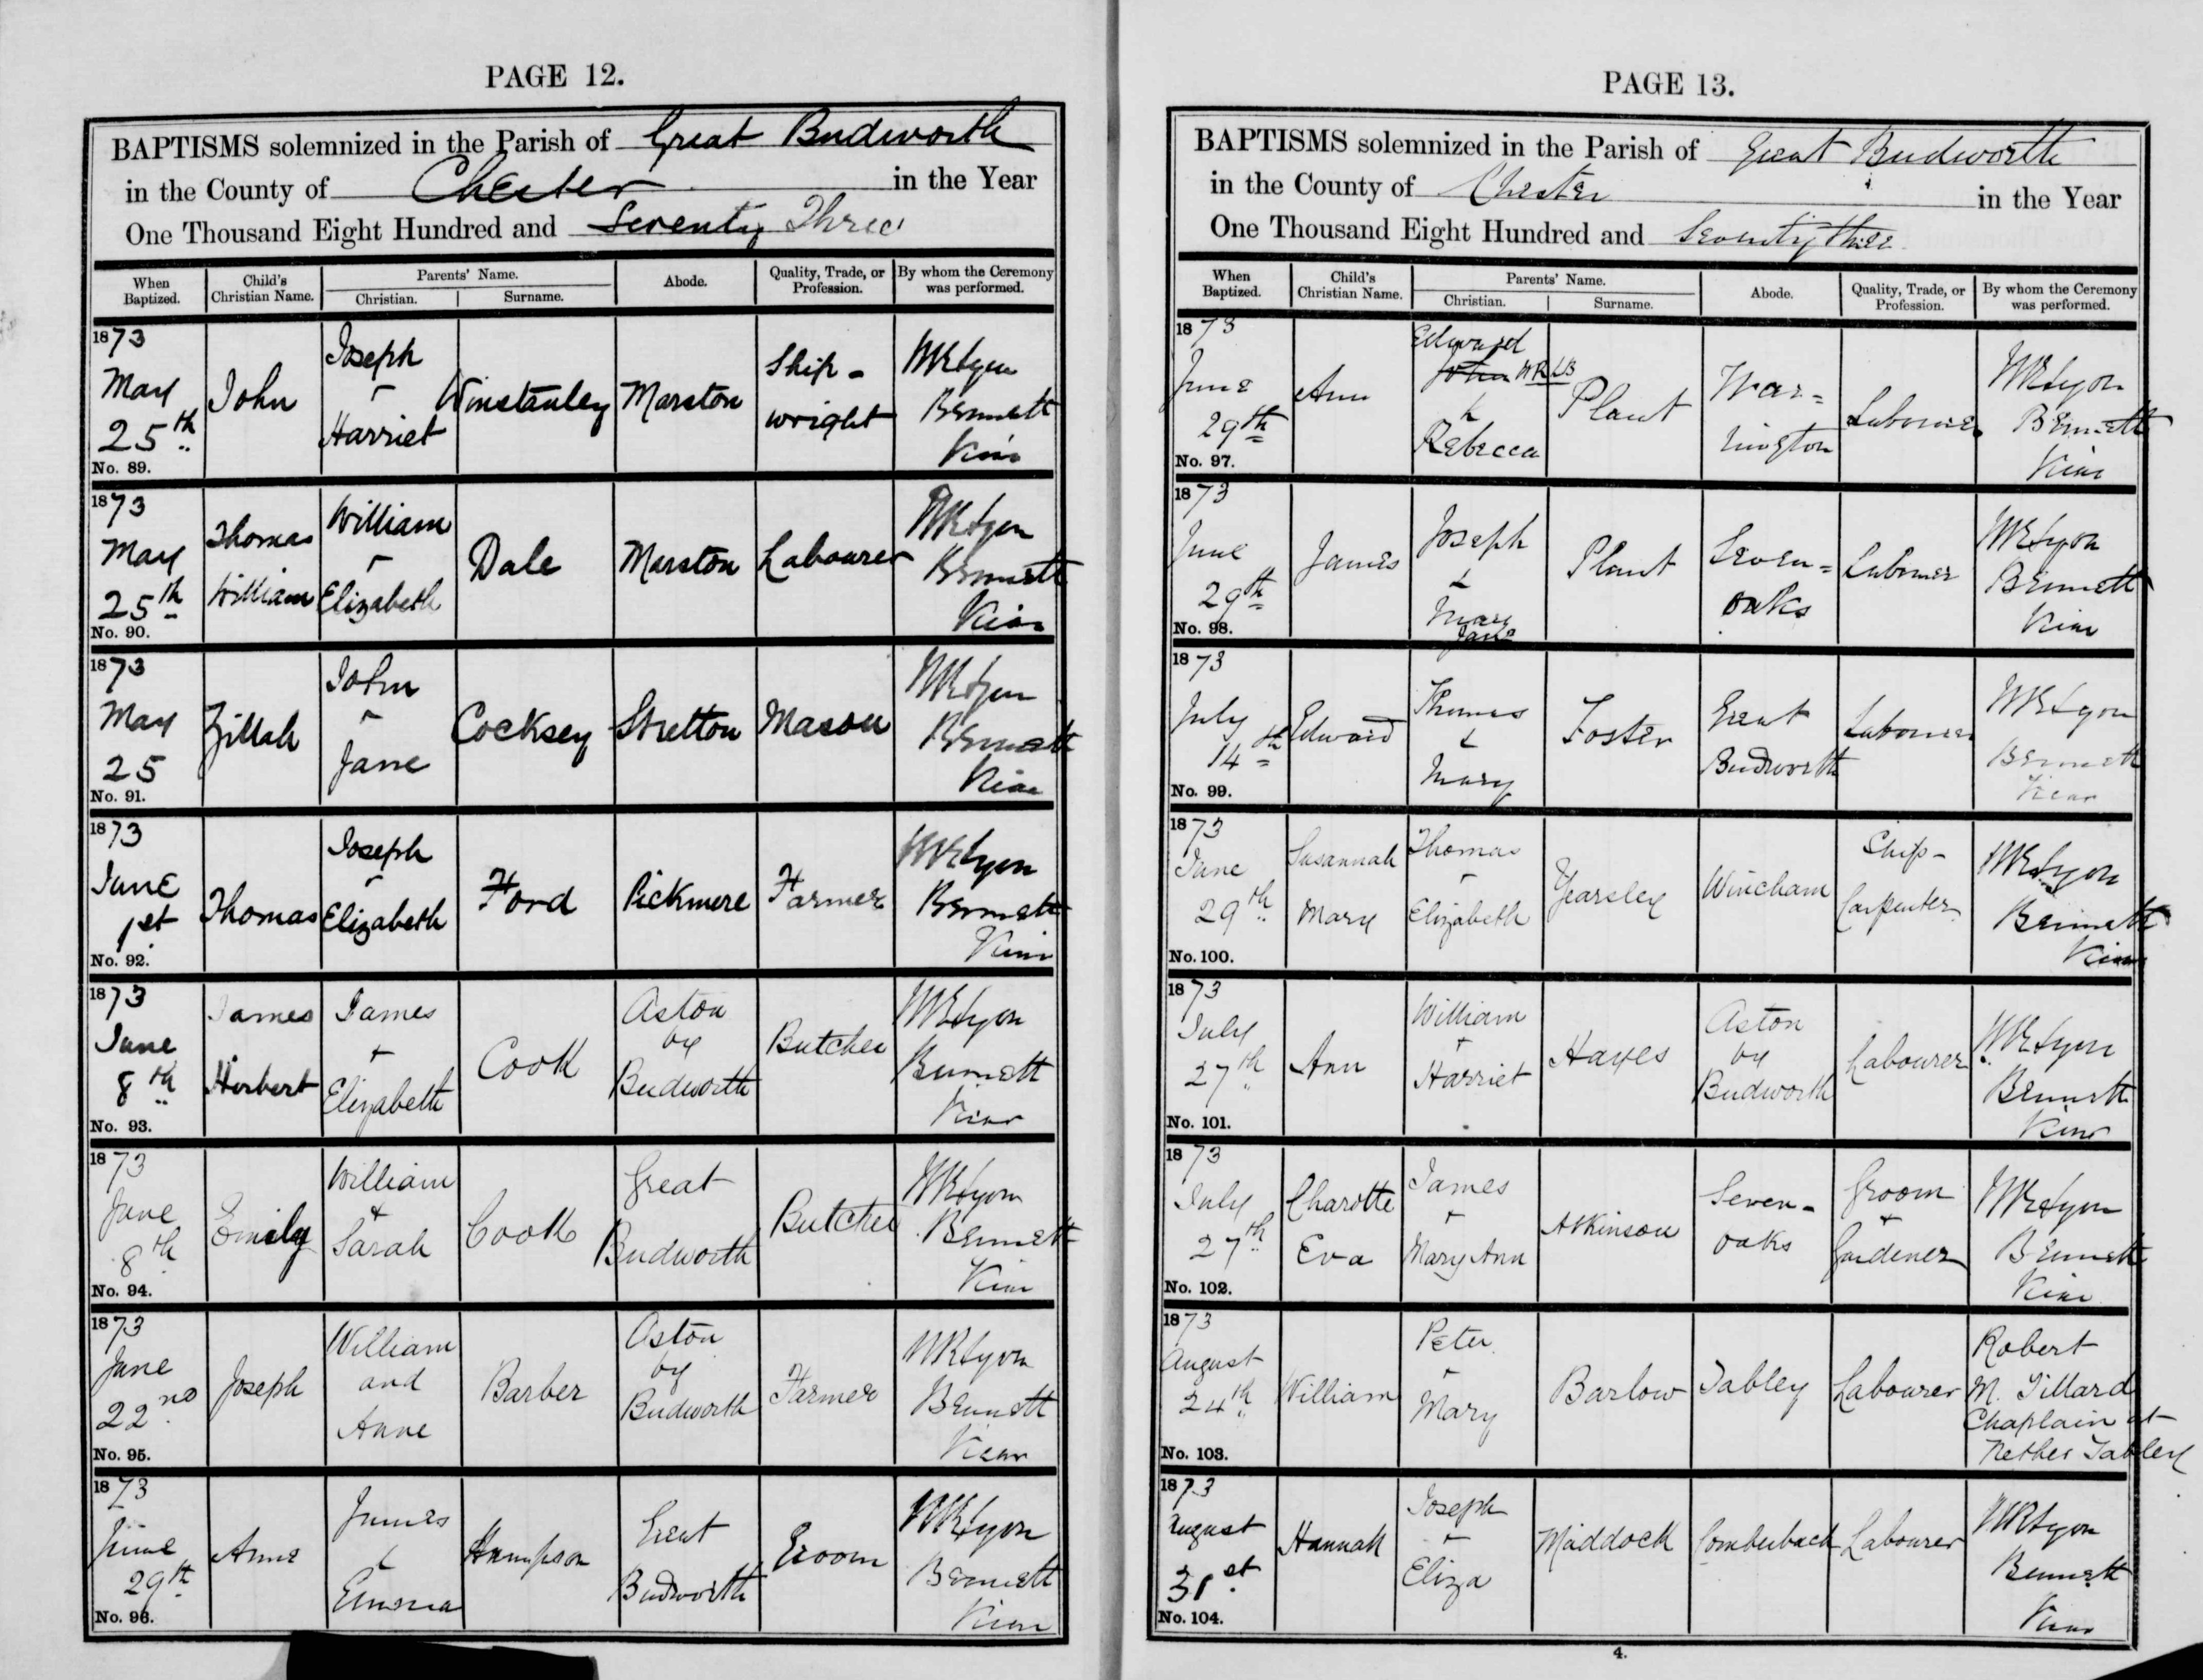 PAGE 12.
BAPTISMS solemnized in the Parish of Great Budworth
in the County of Chester in the Year
One Thousand Eight Hundred and Seventy Three
When Baptized. Child's Christian Name. Parents' Name. Christian. Surname. Abode. Quality, Trade, or Profession. By whom the Ceremony was performed.
1873 May 25th No. 89. John Joseph + Harriet Winstanley Marston Ship-wright W R Lyon Bennett Vicar
1873 May 25th No. 90. Thomas William William + Elizabeth Dale Marston Labourer W R Lyon Bennett Vicar
1873 May 25 No. 91. Zillah John + Jane Cocksey Stretton Mason W R Lyon Bennett Vicar
1873 June 1st No. 92. Thomas Joseph + Elizabeth Ford Pickmere Farmer W R Lyon Bennett Vicar
1873 June 8th No. 93. James Herbert James + Elizabeth Cook Aston by Budworth Butcher W R Lyon Bennett Vicar
1873 June 8th No. 94. Emily William + Sarah Cook Great Budworth Butcher W R Lyon Bennett Vicar
1873 June 22nd No. 95. Joseph William and Anne Barber Aston by Budworth Farmer W R Lyon Bennett Vicar
1873 June 29th No. 96. Anne James & Emma Hampson Great Budworth Groom W R Lyon Bennett Vicar
PAGE 13.
BAPTISMS solemnized in the Parish of Great Budworth
in the County of Chester in the Year
One Thousand Eight Hundred and Seventy three
When Baptized. Child's Christian Name. Parents' Name. Christian. Surname. Abode. Quality, Trade, or Profession. By whom the Ceremony was performed.
1873 June 29th No. 97. Ann Edward John WRLB & Rebecca Plant War-rington Labourer W R Lyon Bennett Vicar
1873 June 29th No. 98. James Joseph & Mary Jane Plant Seven-oaks Labourer W R Lyon Bennett Vicar
1873 July 14th No. 99. Edward Thomas & Mary Foster Great Budworth Labourer W R Lyon Bennett Vicar
1873 June 29th No. 100. Susannah Mary Thomas + Elizabeth Yearsley Wincham Ship-Carpenter W R Lyon Bennett Vicar
1873 July 27th No. 101. Ann William + Harriet Hayes Aston by Budworth Labourer W R Lyon Bennett Vicar
1873 July 27th No. 102. Charotte Eva James + Mary Ann Atkinson Seven-oaks Groom + Gardener W R Lyon Bennett Vicar
1873 August 24th No. 103. William Peter + Mary Barlow Tabley Labourer Robert M. Tillard Chaplain at Nether Tabley
1873 August 31st No. 104. Hannah Joseph + Eliza Maddock Comberbach Labourer W R Lyon Bennett Vicar
4.